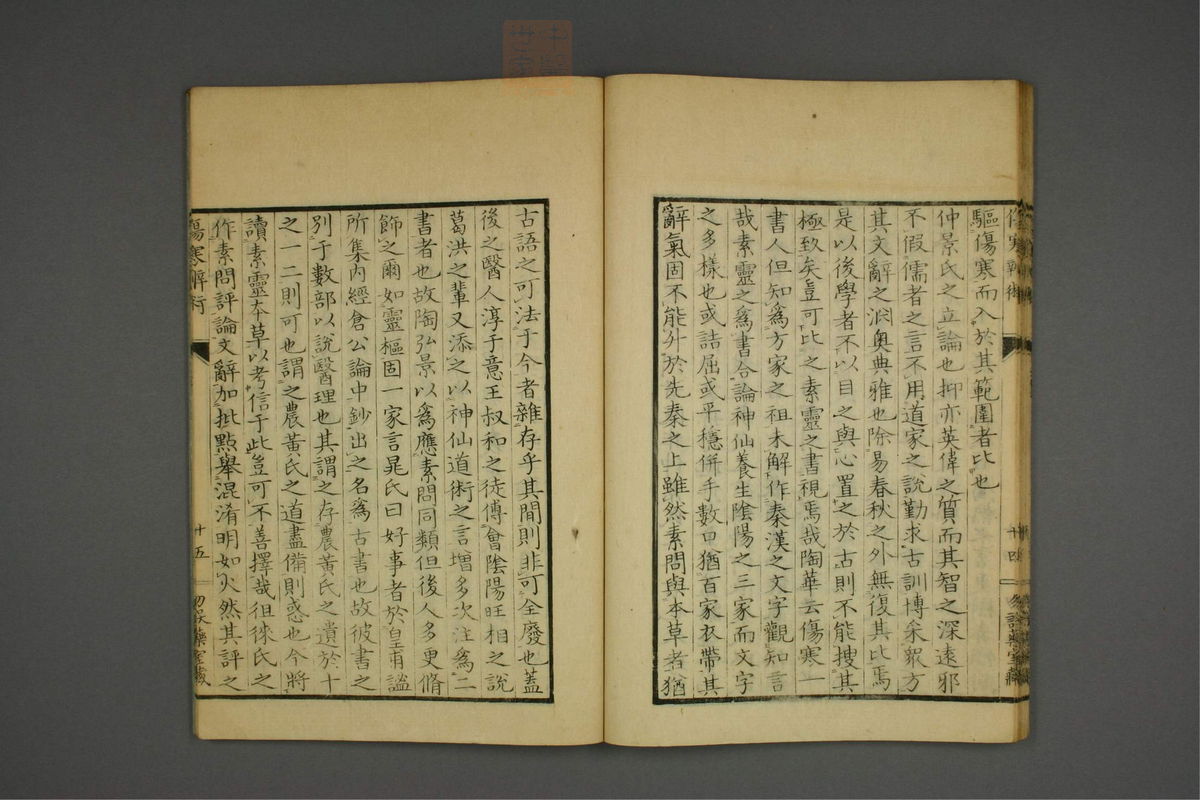 傷寒辨術
十四
驅傷寒而入於其範圍者比也
仲景氏之立論也抑亦英偉之質而其智之深遠邪
不假儒者之言不用道家之說勤求古訓博采眾方
其文辭之淵奧典雅也除易春秋之外無復其比焉
是以後學者不以目之與心置之於古則不能搜其
極致矣豈可比之素靈之書視焉哉陶華云傷寒一
書人但知為方家之祖未解作秦漢之文字觀知言
哉素靈之為書合論神仙養生陰陽之三家而文字
之多樣也或詰屈或平穩併手數口猶百家衣帶其
辭氣固不能外於先秦之上雖然素問與本草者猶
古語之可法于今者雜存乎其間則非可全廢也蓋
後之醫人淳于意王叔和之徒傅會陰陽旺相之說
葛洪之輩又添之以神仙道術之言增多次注為二
書者也故陶弘景以為應素問同類但後人多更脩
飾之爾如靈樞固一家言晁氏曰好事者於皇甫謐
所集內經倉公論中鈔出之名為古書也故彼書之
別于數部以說醫理也其謂之存農黃氏之遺於十
之一二則可也謂之農黃氏之道盡備則惑也今將
讀素靈本草以考信于此豈可不善擇哉徂徠氏之
作素問評論文辭加批點舉混淆明如火然其評之
傷寒辨術
十五